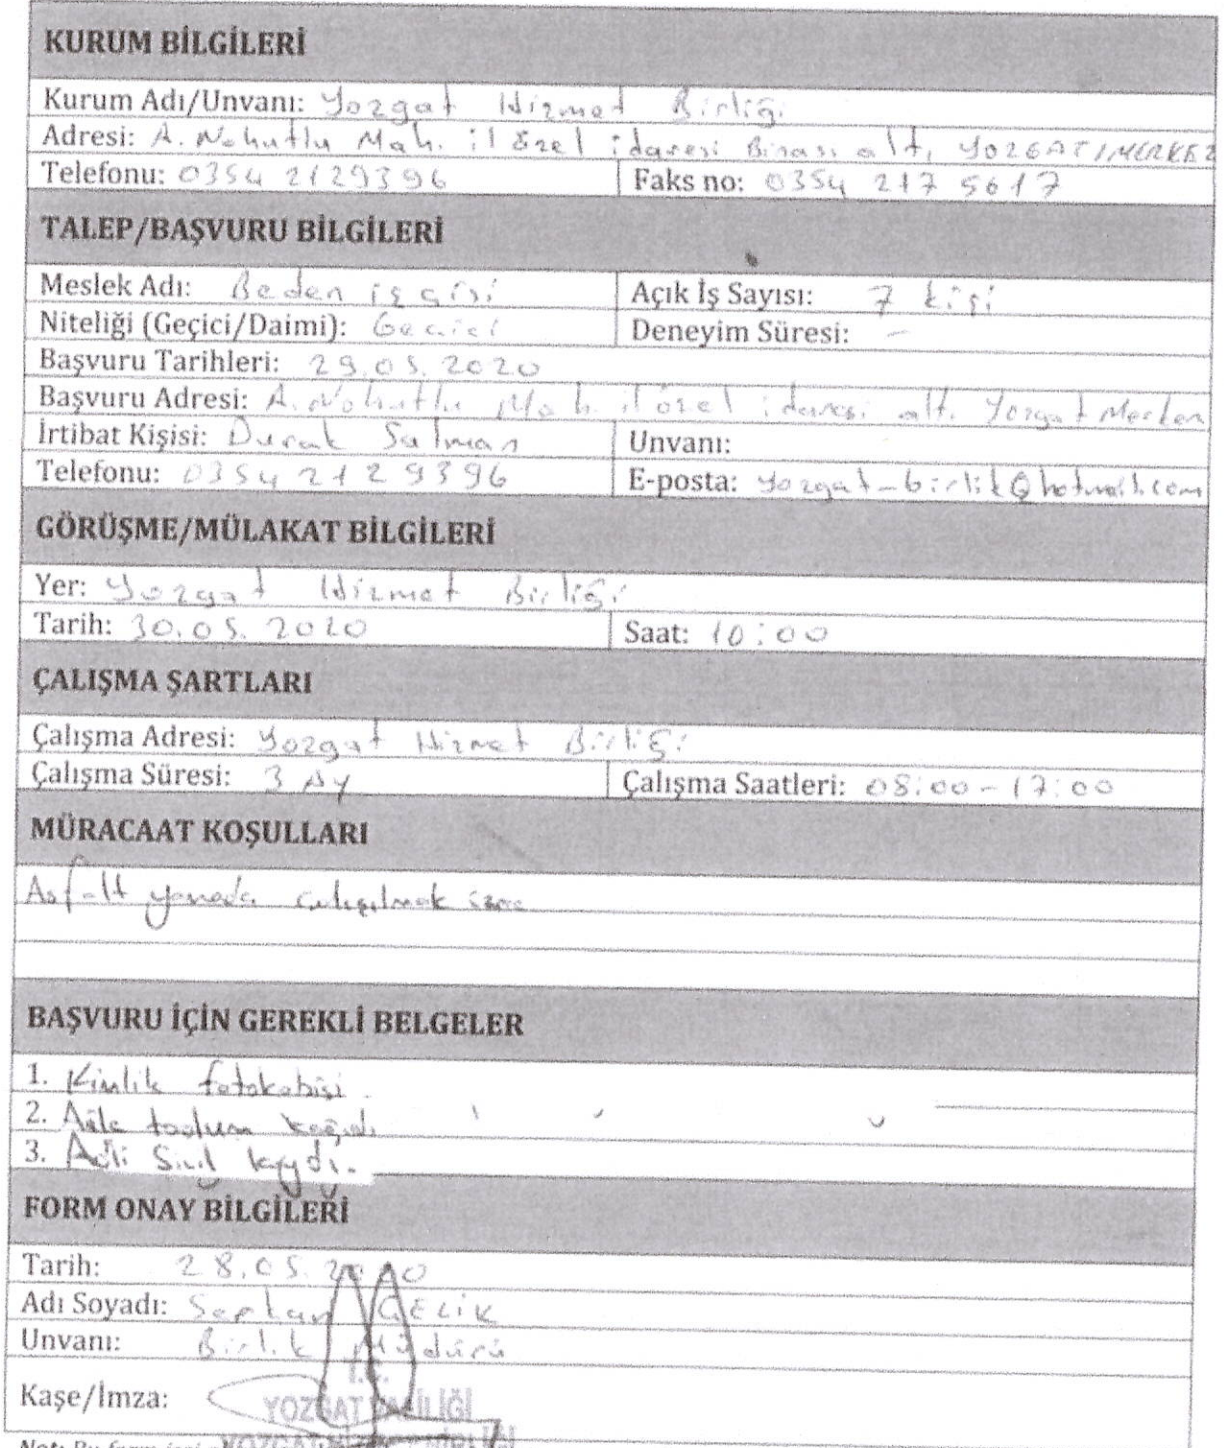 KURUM BİLGİLERİ
Kurum Adı/Unvanı: Yozgat Hizmet Birliği
Adresi: A. Nohutlu Mah. il özel idaresi Binası altı YOZGAT/MERKEZ
Telefonu: 0354 2129396 Faks no: 0354 217 5617
TALEP/BAŞVURU BİLGİLERİ
Meslek Adı: Beden işçisi Açık İş Sayısı: 7 kişi
Niteliği (Geçici/Daimi): Geçici Deneyim Süresi: -
Başvuru Tarihleri: 29.05.2020
Başvuru Adresi: A. Nohutlu Mah. il özel idaresi altı Yozgat Merkez
İrtibat Kişisi: Durak Salman Unvanı:
Telefonu: 0354 2129396 E-posta: yozgat-birlik@hotmail.com
GÖRÜŞME/MÜLAKAT BİLGİLERİ
Yer: Yozgat Hizmet Birliği
Tarih: 30.05.2020 Saat: 10:00
ÇALIŞMA ŞARTLARI
Çalışma Adresi: Yozgat Hizmet Birliği
Çalışma Süresi: 3 Ay Çalışma Saatleri: 08:00-17:00
MÜRACAAT KOŞULLARI
Asfalt çalışılmak üzere
BAŞVURU İÇİN GEREKLİ BELGELER
1. Kimlik fotokobisi
2. Aile kağıdı
3. Adli Sicil kaydı.
FORM ONAY BİLGİLERİ
Tarih: 28.05.2020
Adı Soyadı: ÇELİK
Unvanı: Birlik Müdürü
Kaşe/İmza:
T.C.
YOZGAT VALİLİĞİ
Not: Bu form